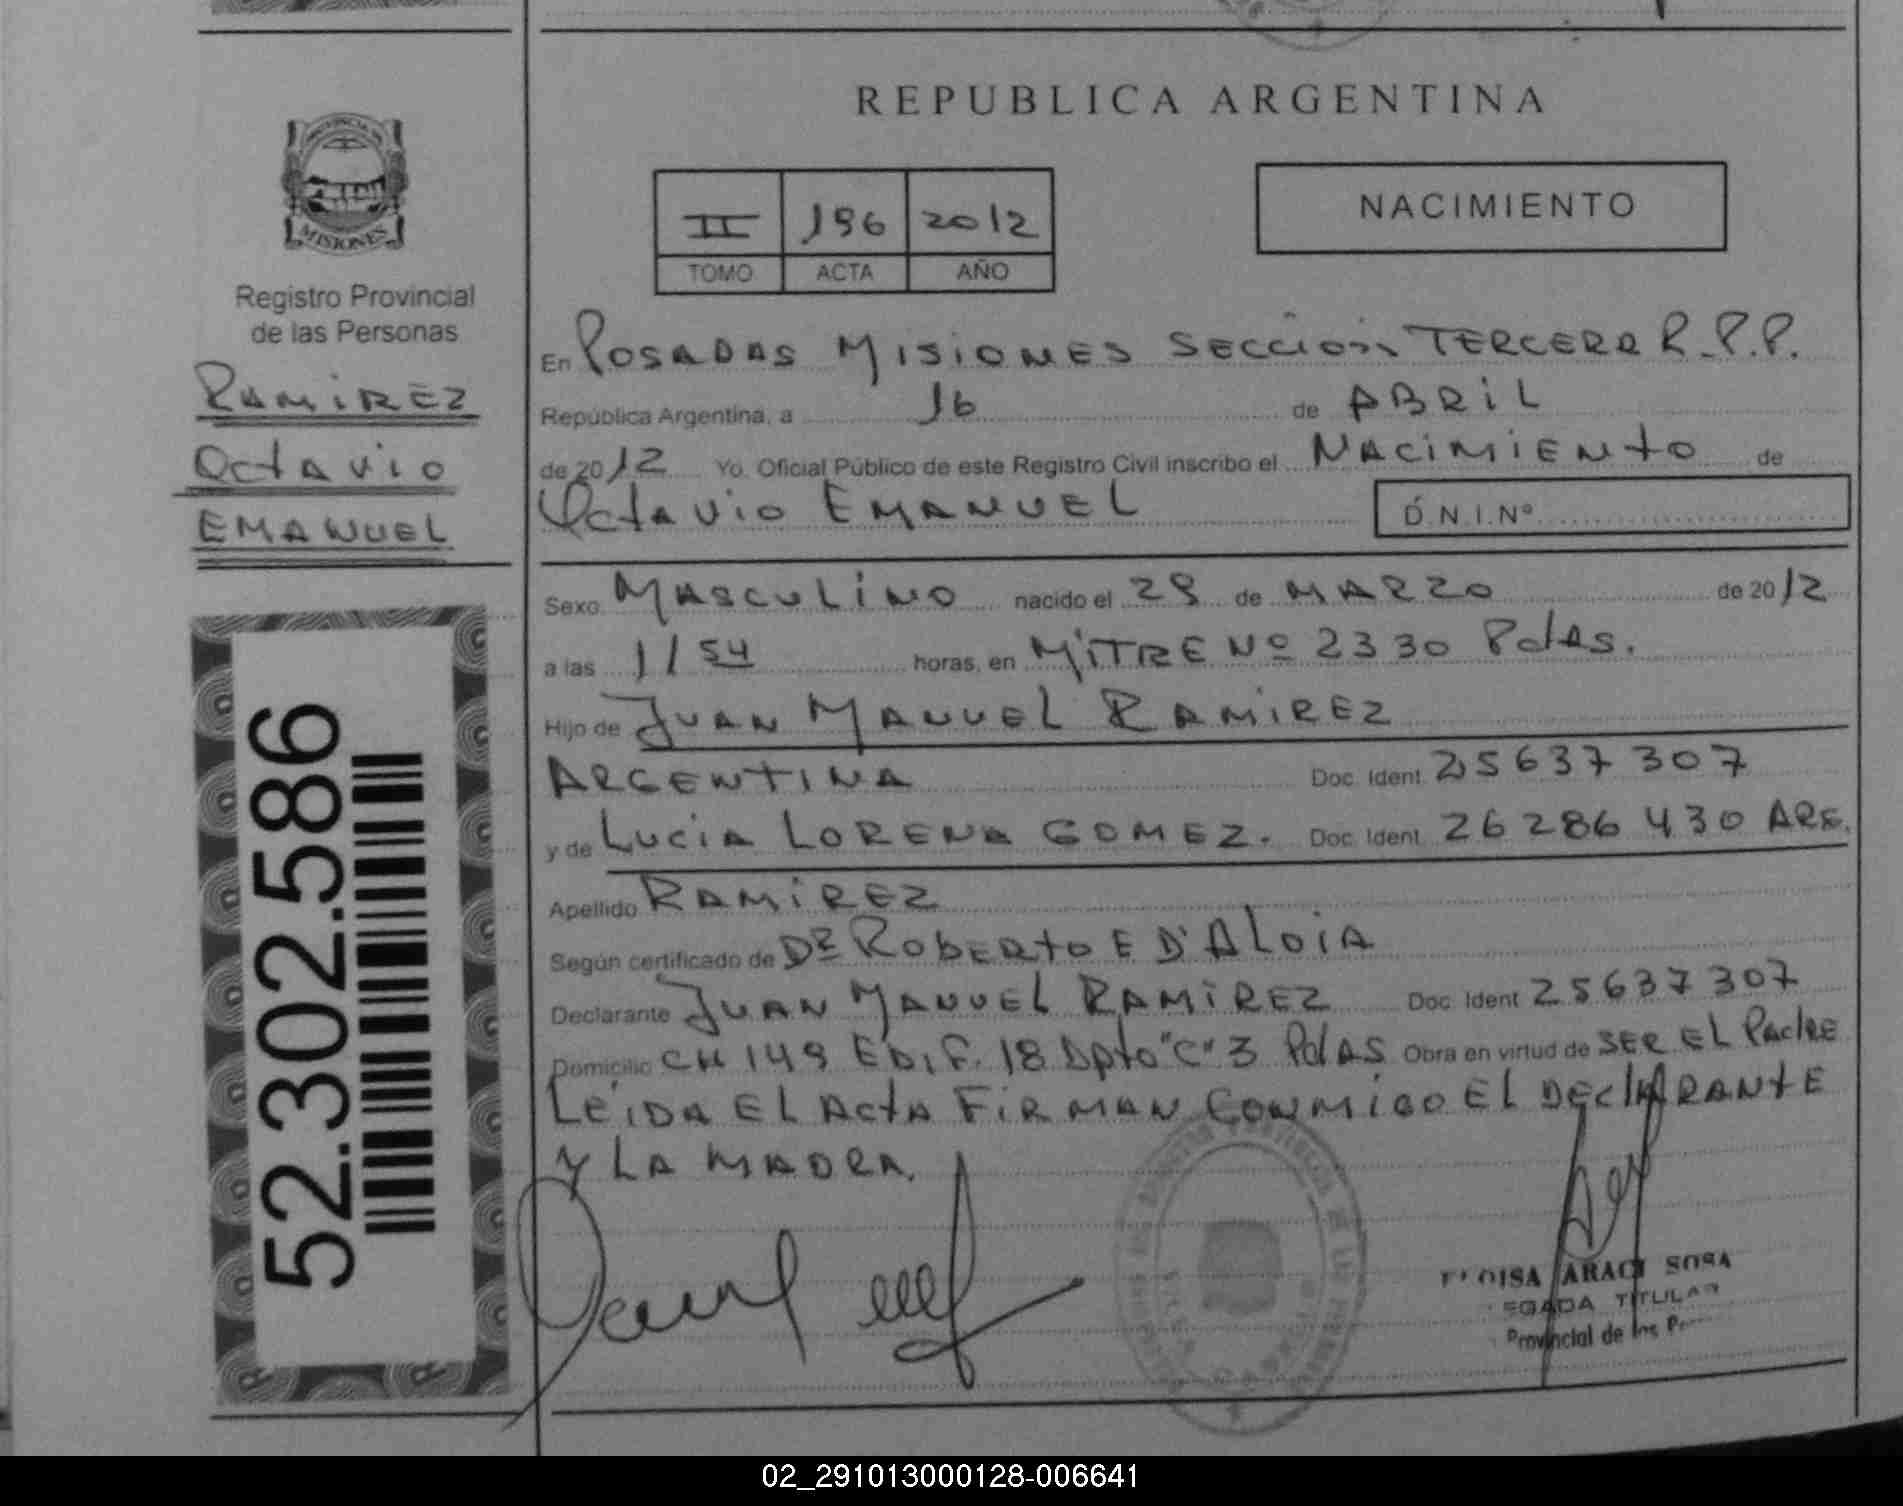 REPUBLICA ARGENTINA
PROVINCIA DE
MISIONES
Registro Provincial
de las Personas
RAMIREZ
OCTAVIO
EMANUEL
52.302.586
II 196 2012
TOMO ACTA AÑO
NACIMIENTO
En POSADAS MISIONES SECCION TERCERA R.P.P.
República Argentina, a 16 de ABRIL
de 2012 Yo. Oficial Público de este Registro Civil inscribo el NACIMIENTO de
OCTAVIO EMANUEL D.N.I.Nº
Sexo MASCULINO nacido el 29 de MARZO de 2012
a las 11 54 horas, en MITRE Nº 2330 Pdas.
Hijo de JUAN MANUEL RAMIREZ
ARGENTINA Doc. Ident. 25637307
y de LUCIA LORENA GOMEZ. Doc. Ident. 26286430 ARG.
Apellido RAMIREZ
Según certificado de DR ROBERTO E D'ALOIA
Declarante JUAN MANUEL RAMIREZ Doc. Ident 25637307
Domicilio CH 149 EDIF. 18 Dpto "C" 3 PdAS Obra en virtud de SER EL PADRE
LEIDA EL ACTA FIRMAN CONMIGO EL DECLARANTE
Y LA MADRA.
ELOISA ARACI SOSA
TITULAR
Provincial de las
02_291013000128-006641